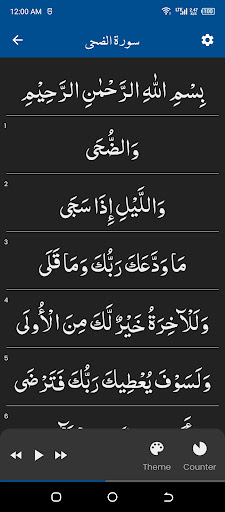 12:00 AM
سورة الضحى
بِسْمِ اللَّهِ الرَّحْمَٰنِ الرَّحِيْمِ
1
وَالضُّحَى
2
وَاللَّيْلِ إِذَا سَجَى
3
مَا وَدَّعَكَ رَبُّكَ وَمَا قَلَى
4
وَلَلْآخِرَةُ خَيْرٌ لَّكَ مِنَ الْأُولَى
5
وَلَسَوْفَ يُعْطِيكَ رَبُّكَ فَتَرْضَى
6
Theme Counter